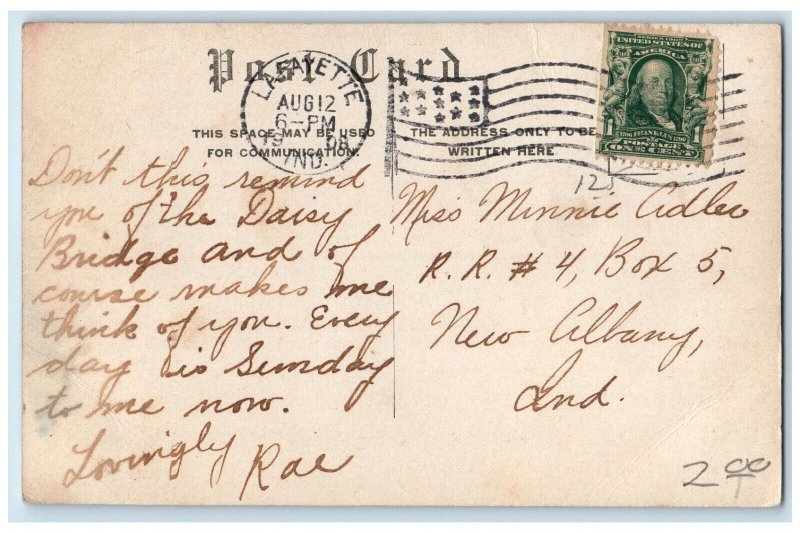 Post Card
LAFAYETTE
AUG 12
6-PM
1908
IND.
SERIES 1902
UNITED STATES OF
AMERICA
1
1706 FRANKLIN 1790
POSTAGE
ONE CENT
THIS SPACE MAY BE USED
FOR COMMUNICATION.
THE ADDRESS ONLY TO BE
WRITTEN HERE
Don't this remind
you of the Daisy
Bridge and of
course makes me
think of you. Every
day is Sunday
to me now.
Lovingly Rae
Miss Minnie Adler
R. R. # 4, Box 5,
New Albany,
Ind.
2 00